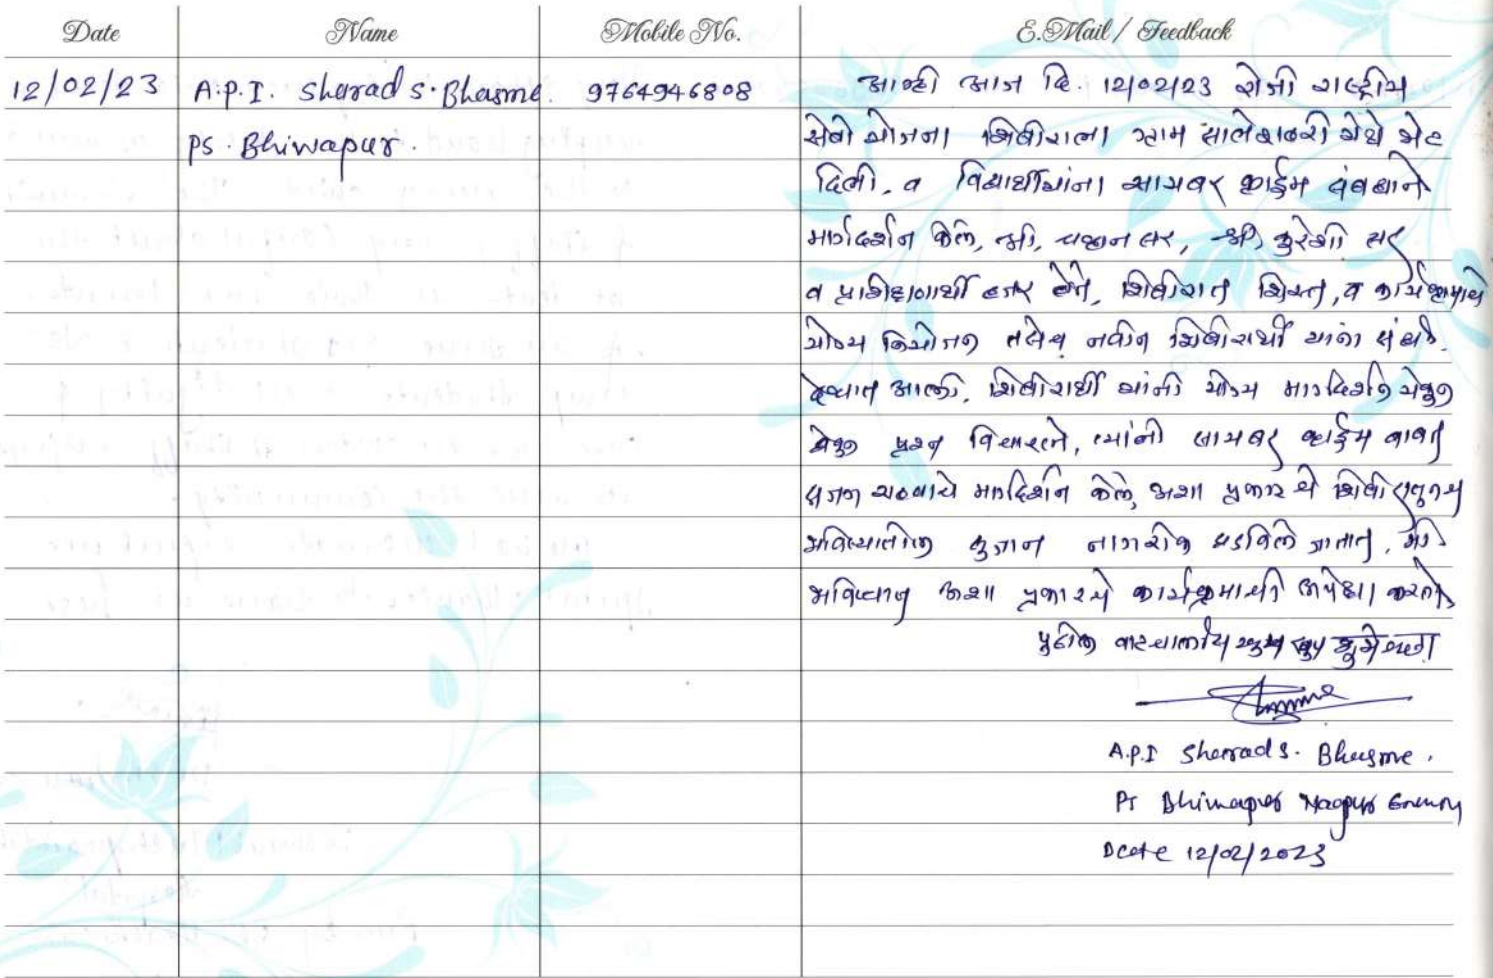 Date Name Mobile No. E.Mail / Feedback
12/02/23 A.P.I. Sharad S. Bhasme. 9764946808 आम्ही आज दि. 12/02/23 रोजी राष्ट्रीय
PS. Bhiwapur. सेवा योजना शिबीराला ग्राम सालेशहरी येथे भेट
दिली. व विद्यार्थीयांना सायबर क्राईम संबंधाने
मार्गदर्शन केले, श्री, सर, श्री कुरेशी सर
व प्रशिक्षणार्थी हजर होते, शिबीरात शिस्त, व कार्यक्रमाचे
योग्य नियोजन तसेच नवीन शिबीरार्थी यांना संधी.
देण्यात आली. शिबीरार्थी यांनी योग्य मार्गदर्शन घेवुन
प्रश्न विचारले, त्यांनी सायबर क्राईम बाबत
सजग मार्गदर्शन केले, अशा प्रकारचे शिबीरातुनच
भविष्यातील सुजान नागरीक घडविले जातात, मी
भविष्यात अशा प्रकारचे कार्यक्रमाची अपेक्षा करतो
पुढील वाटचालीय खुप शुभेच्छा
A.P.I Sharad S. Bhasme.
PS Bhiwapur Nagpur
Date 12/02/2023